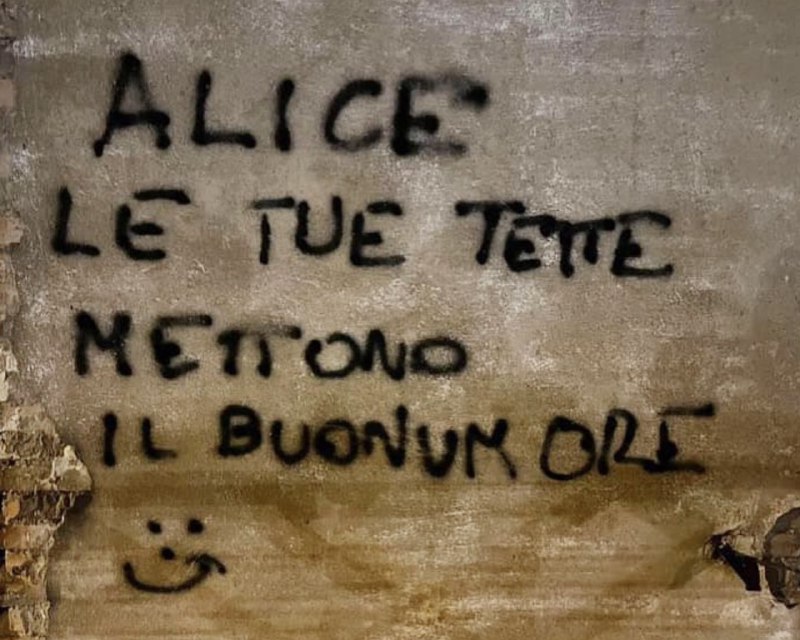 ALICE
LE TUE TETTE
METTONO
IL BUONUMORE